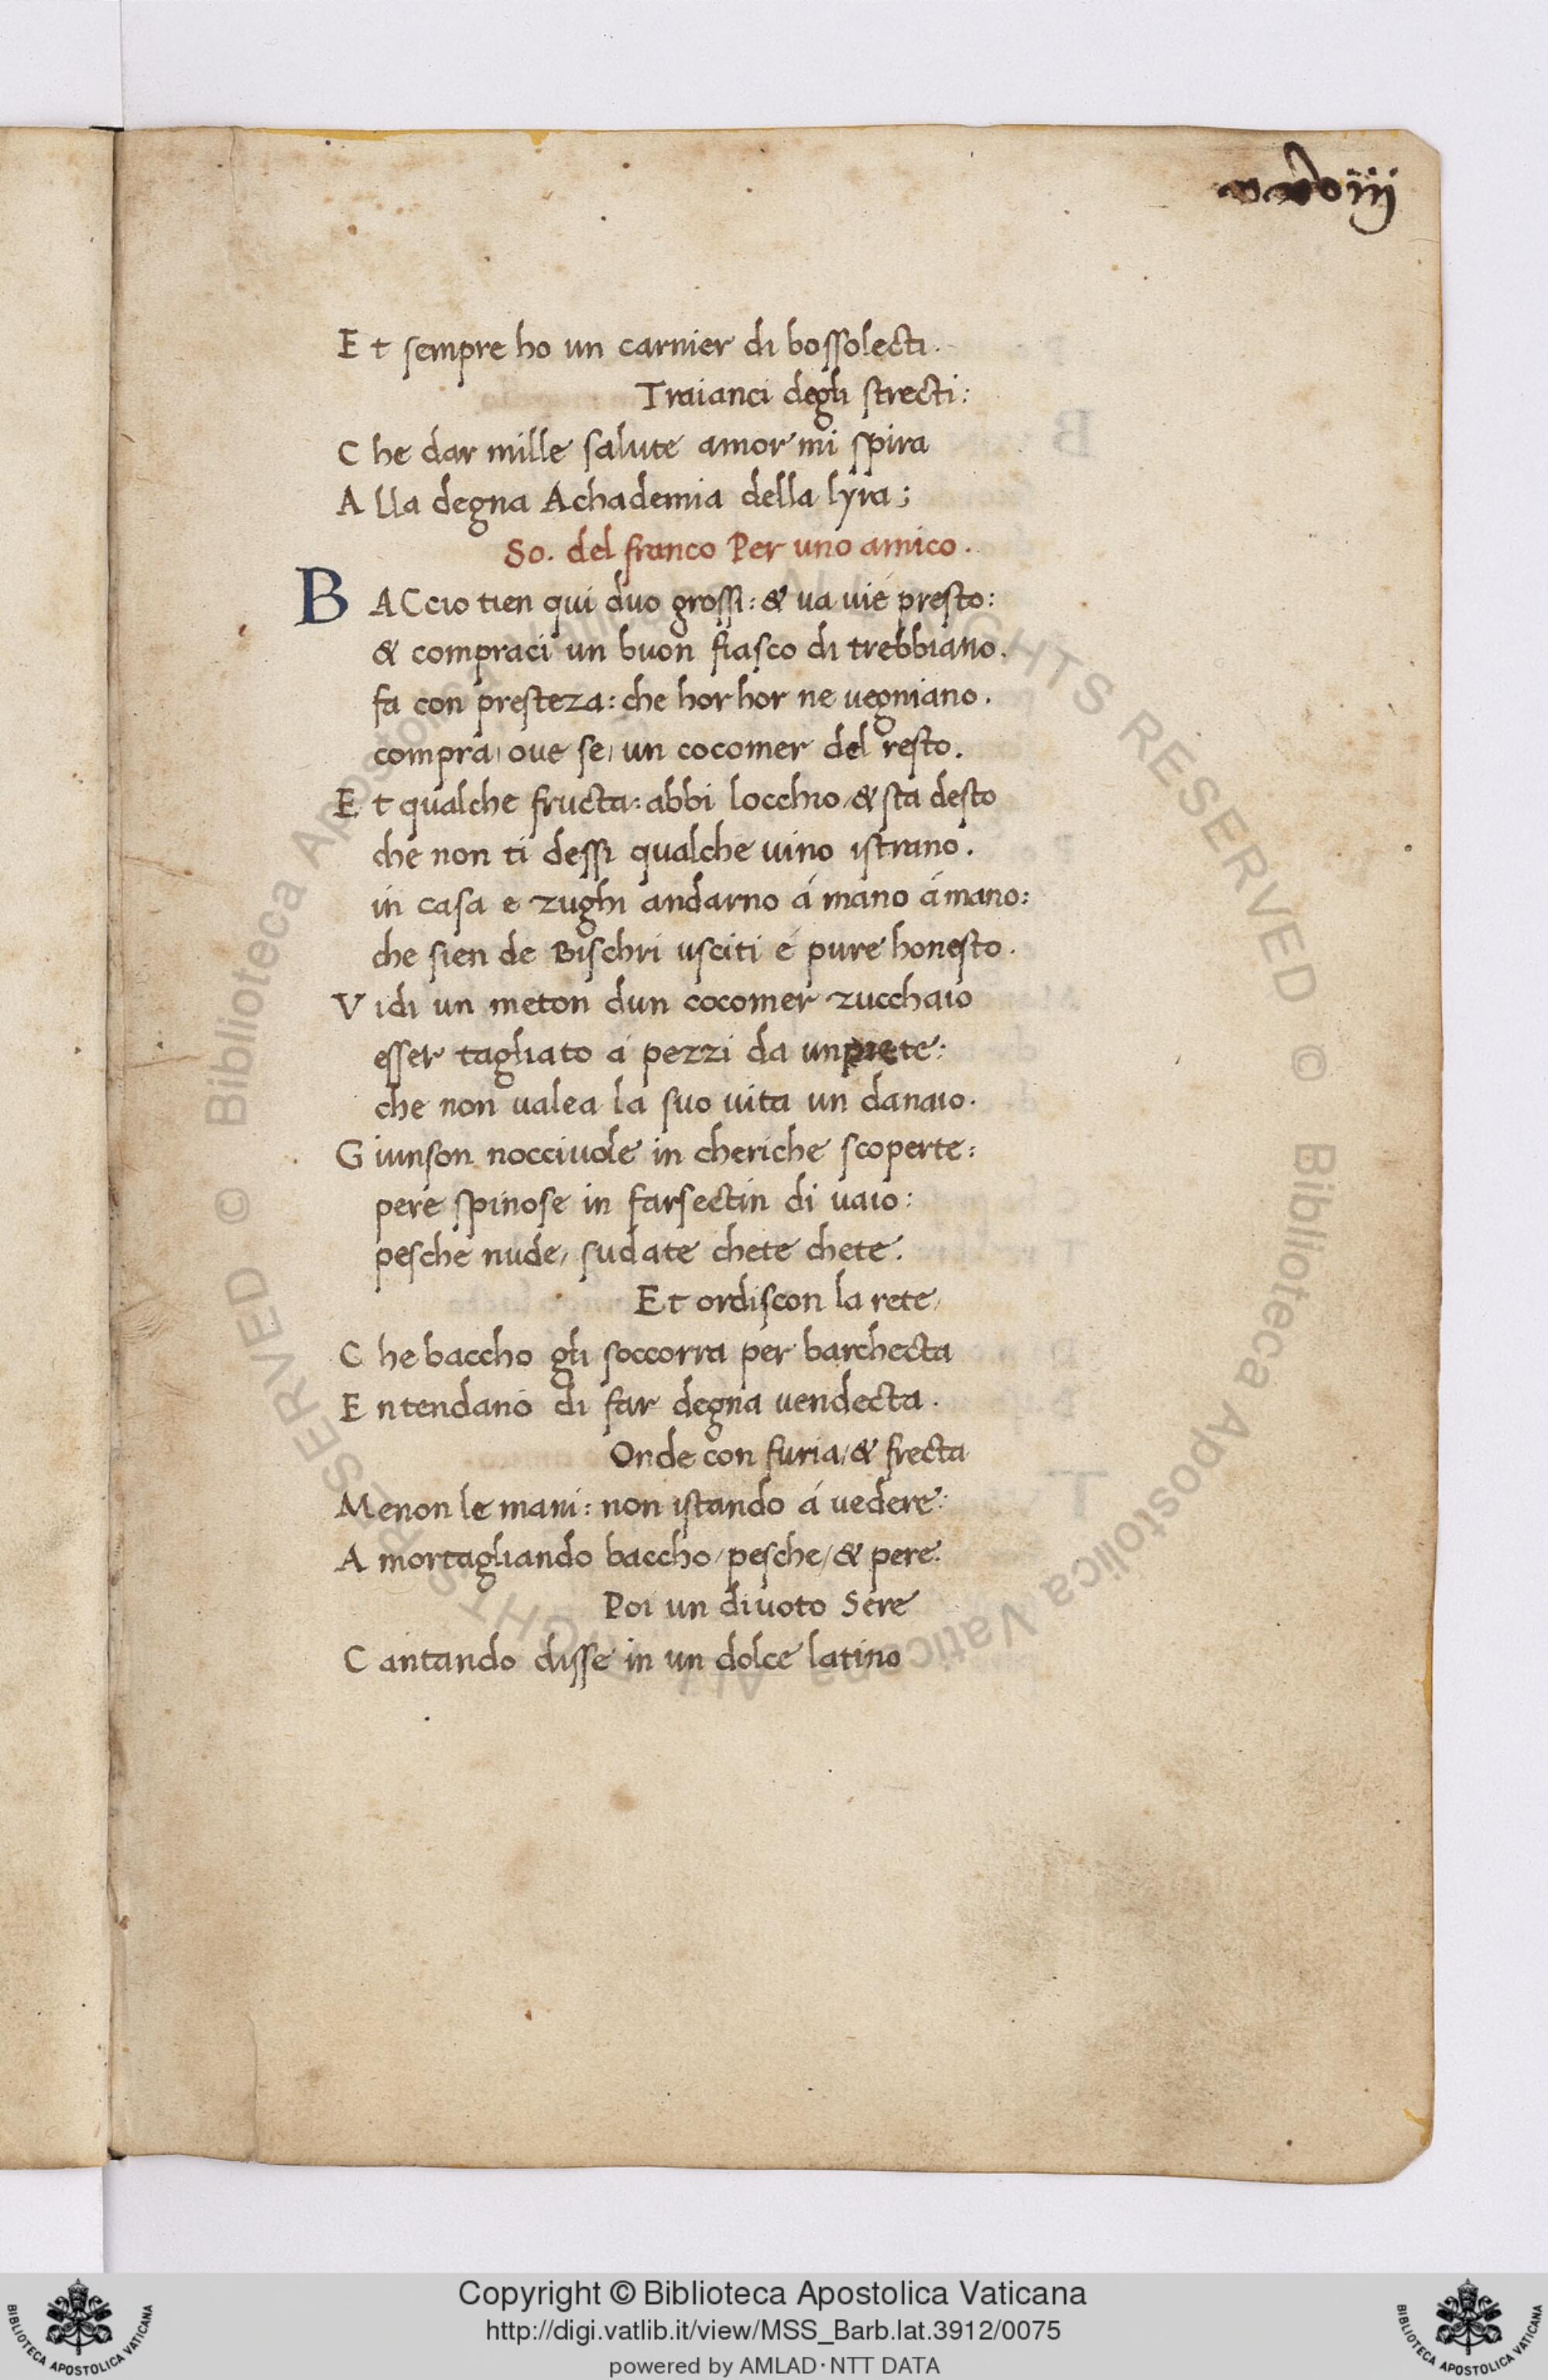 E t sempre ho un carnier di bossolecti.
Traianci degli strecti:
C he dar mille salute amor mi spira
A lla degna Achademia della lyra;
So. del franco Per uno amico.
B ACcio tien qui duo grossi: & va vie presto:
& compraci un buon fiasco di trebbiano.
fa con presteza: che hor hor ne vegniano.
compra, ove se, un cocomer del resto.
E t qualche fructa: abbi locchio, & sta desto
che non ti dessi qualche vino istrano.
in casa e zughi andarno á mano á mano:
che sien de Bischri usciti é pure honesto.
V idi un meton dun cocomer zucchaio
esser tagliato á pezzi da un prete:
che non valea la suo vita un danaio.
G iunson nocciuole in cheriche scoperte:
pere spinose in farsectin di vaio:
pesche nude, sudate chete chete.
Et ordiscon la rete,
C he baccho gli soccorra per barchecta
E ntendano di far degna vendecta.
Onde con furia, & frecta
Menon le mani: non istando á vedere:
A mortagliando baccho, pesche, & pere.
Poi un divoto Sere
C antando disse in un dolce latino
© Biblioteca Apostolica Vaticana ALL RIGHTS RESERVED © Biblioteca Apostolica Vaticana ALL RIGHTS RESERVED
Copyright © Biblioteca Apostolica Vaticana
http://digi.vatlib.it/view/MSS_Barb.lat.3912/0075
powered by AMLAD·NTT DATA
BIBLIOTECA APOSTOLICA VATICANA
BIBLIOTECA APOSTOLICA VATICANA